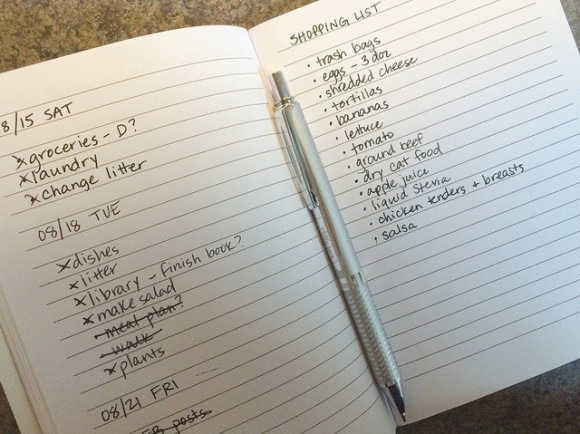 8/15 SAT
x groceries - D?
x laundry
x change litter
08/18 TUE
x dishes
x litter
x library - finish book?
x make salad
· meal plan?
· walk
x plants
08/21 FRI
posts
SHOPPING LIST
· trash bags
· eggs - 3 doz
· shredded cheese
· tortillas
· bananas
· lettuce
· tomato
· ground beef
· dry cat food
· apple juice
· liquid stevia
· chicken tenders + breasts
· salsa